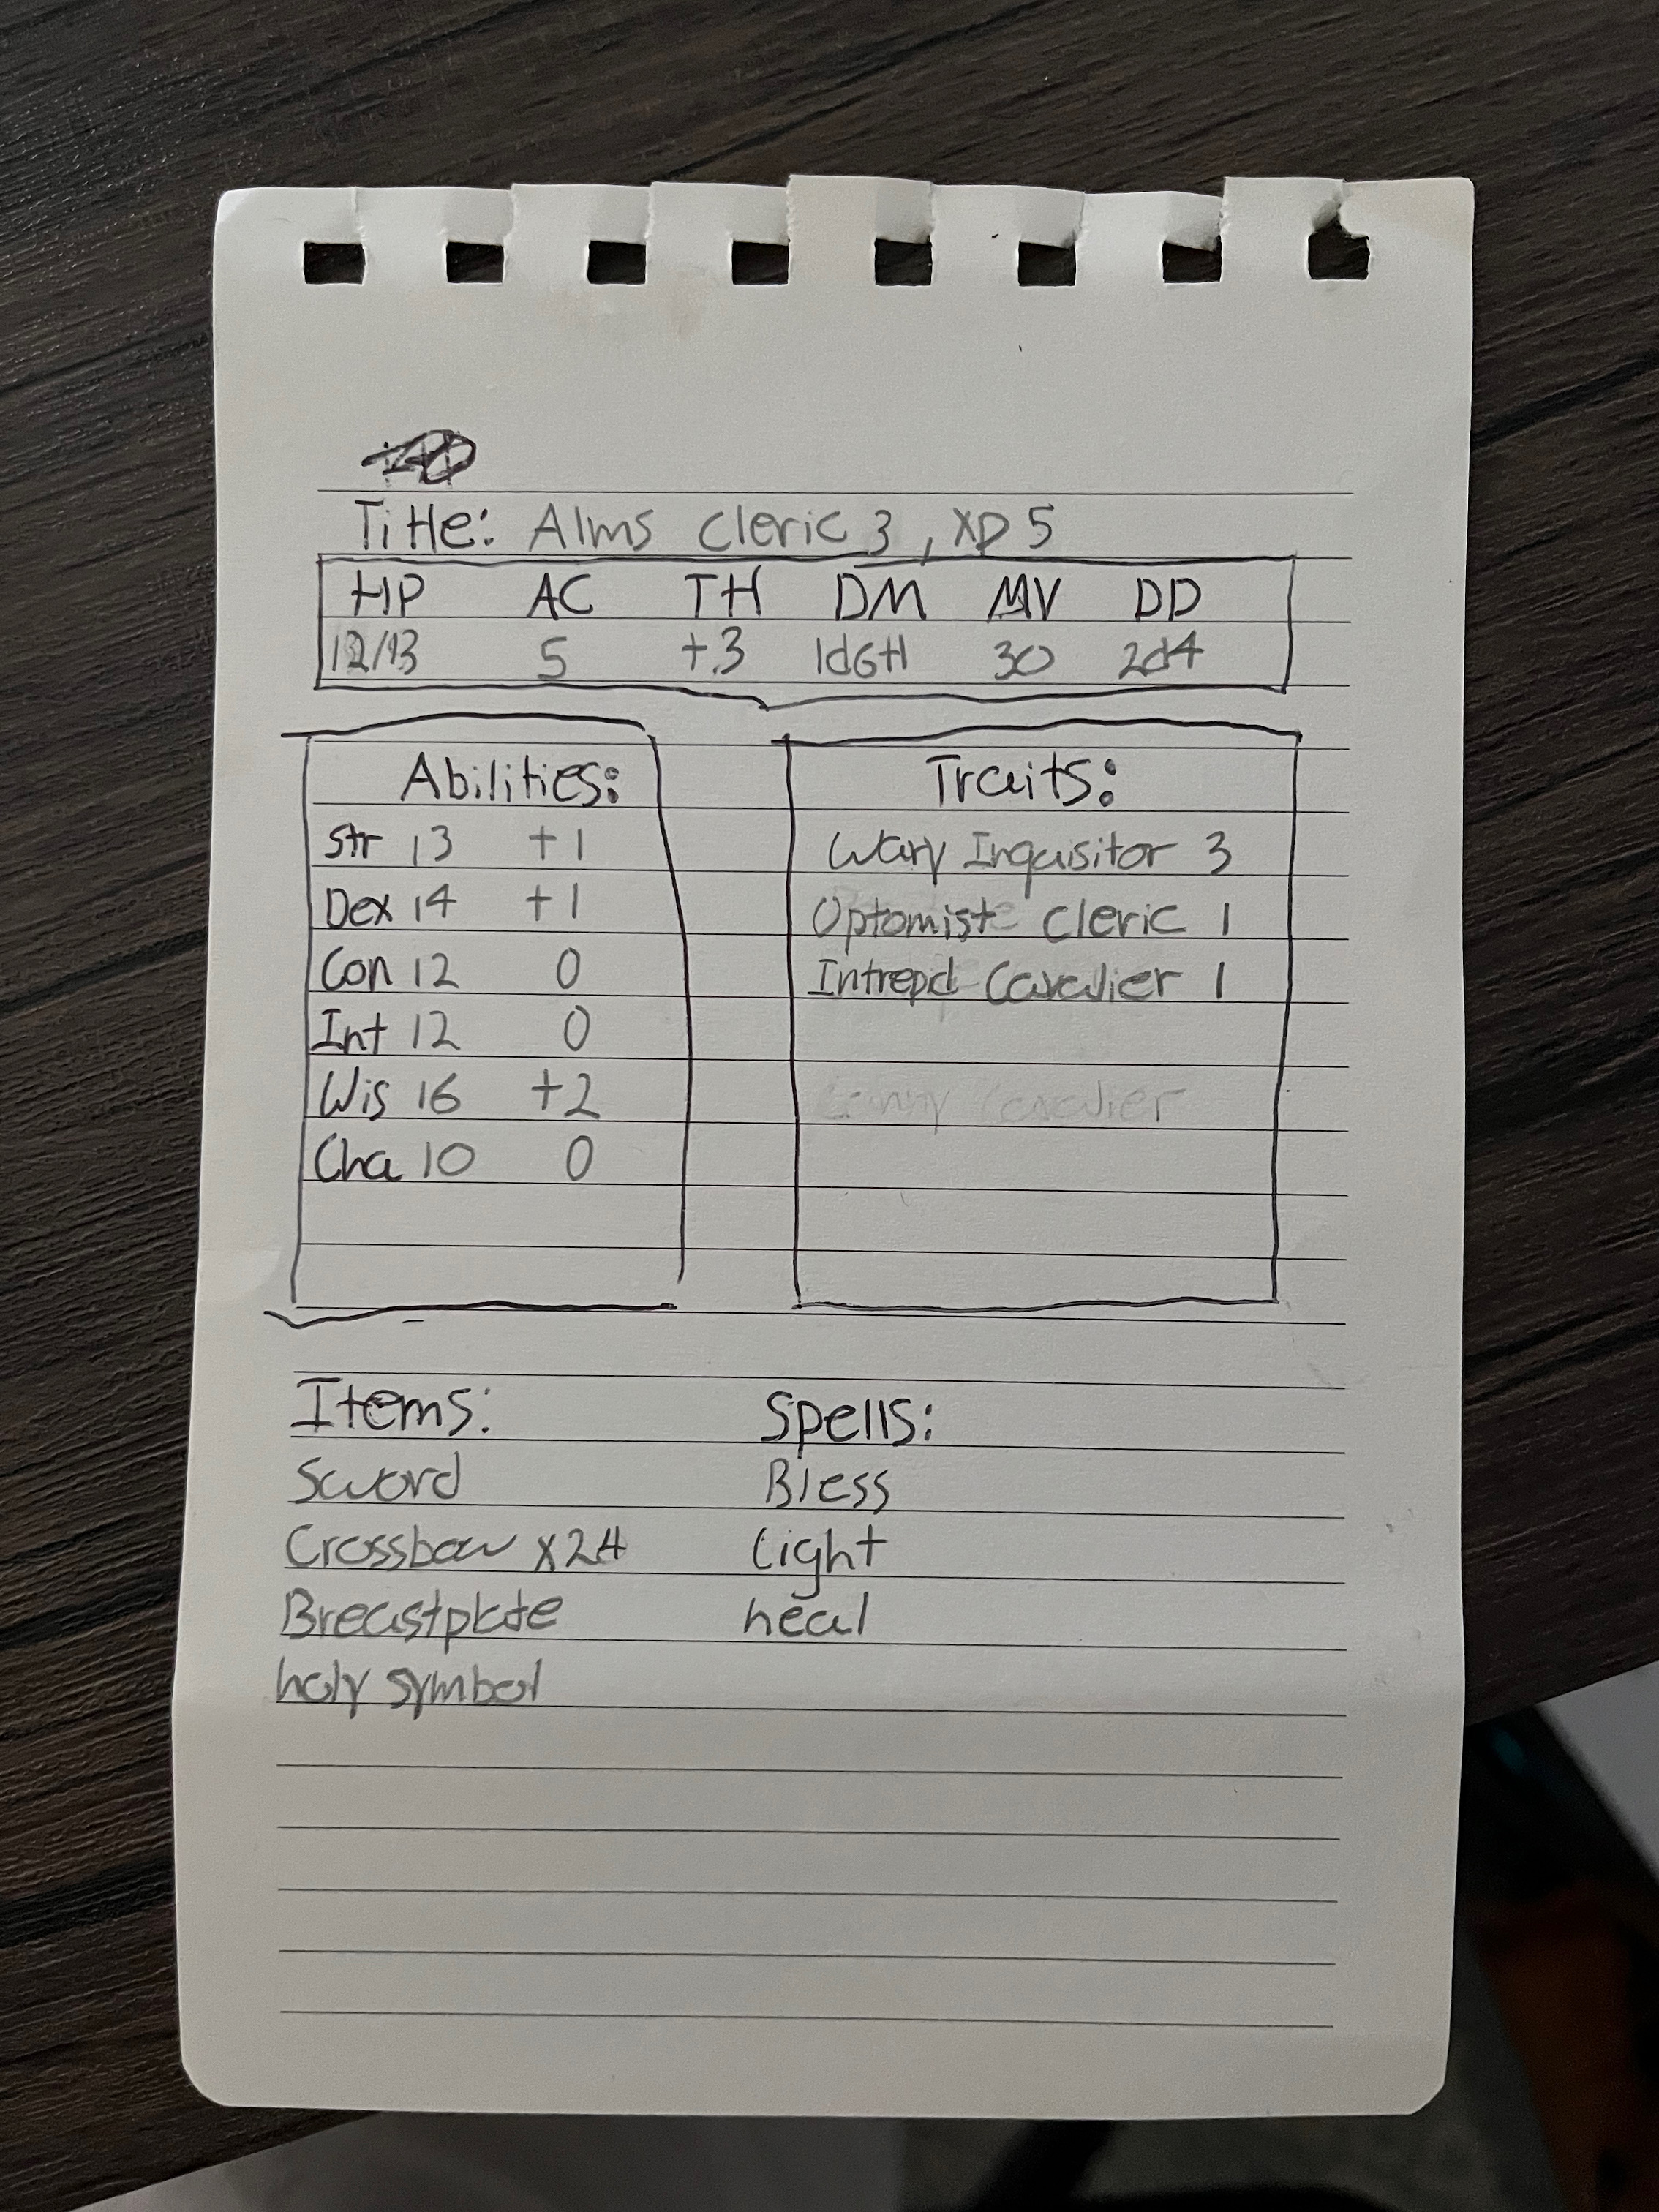 Title: Alms Cleric 3, XP 5
HP AC TH DM MV DD
12/13 5 +3 1d6+1 30 2d4
Abilities:
Str 13 +1
Dex 14 +1
Con 12 0
Int 12 0
Wis 16 +2
Cha 10 0
Traits:
Wary Inquisitor 3
Optomist Cleric 1
Intrepd Cavalier 1
Cavalier
Items:
Sword
Crossbow x24
Breastplate
holy symbol
Spells:
Bless
Light
heal